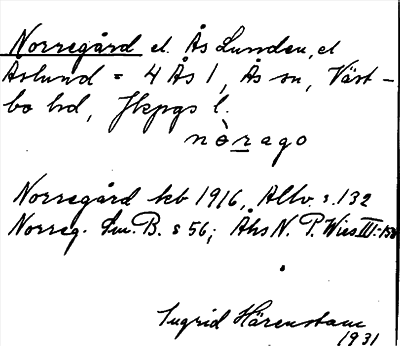 Norregård el. Ås Lunden, el
Åslund = 4 Ås 1, Ås sn, Väst-
bo hd, Jkpgs l.
nòrago
Norregård kb 1916, Allv. s. 132
Norreg. Sm. B. s 56; Åhs N. P. Wies III:
Ingrid Härenstam
1931